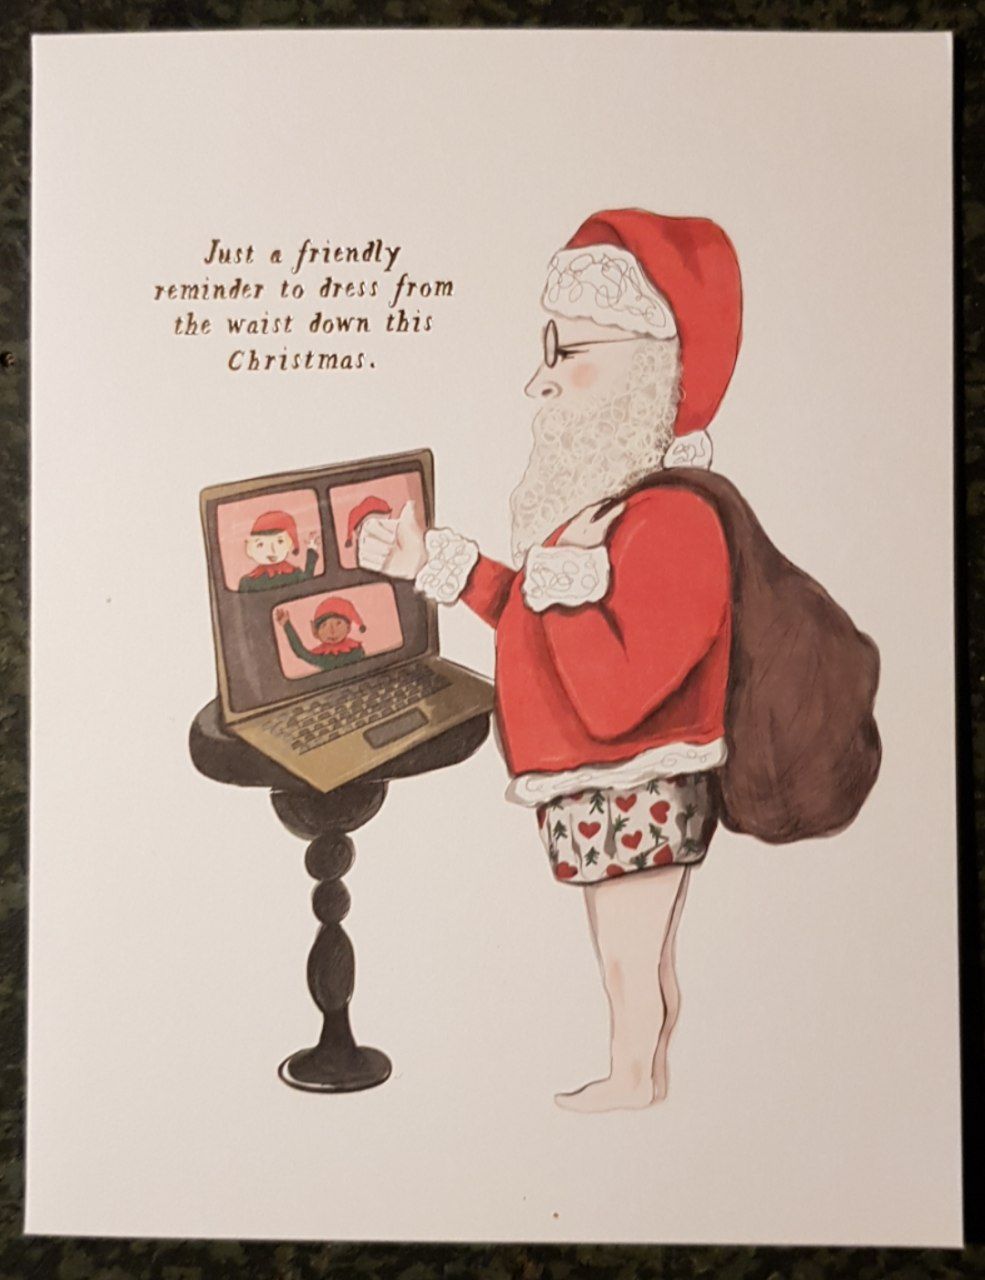 Just a friendly
reminder to dress from
the waist down this
Christmas.